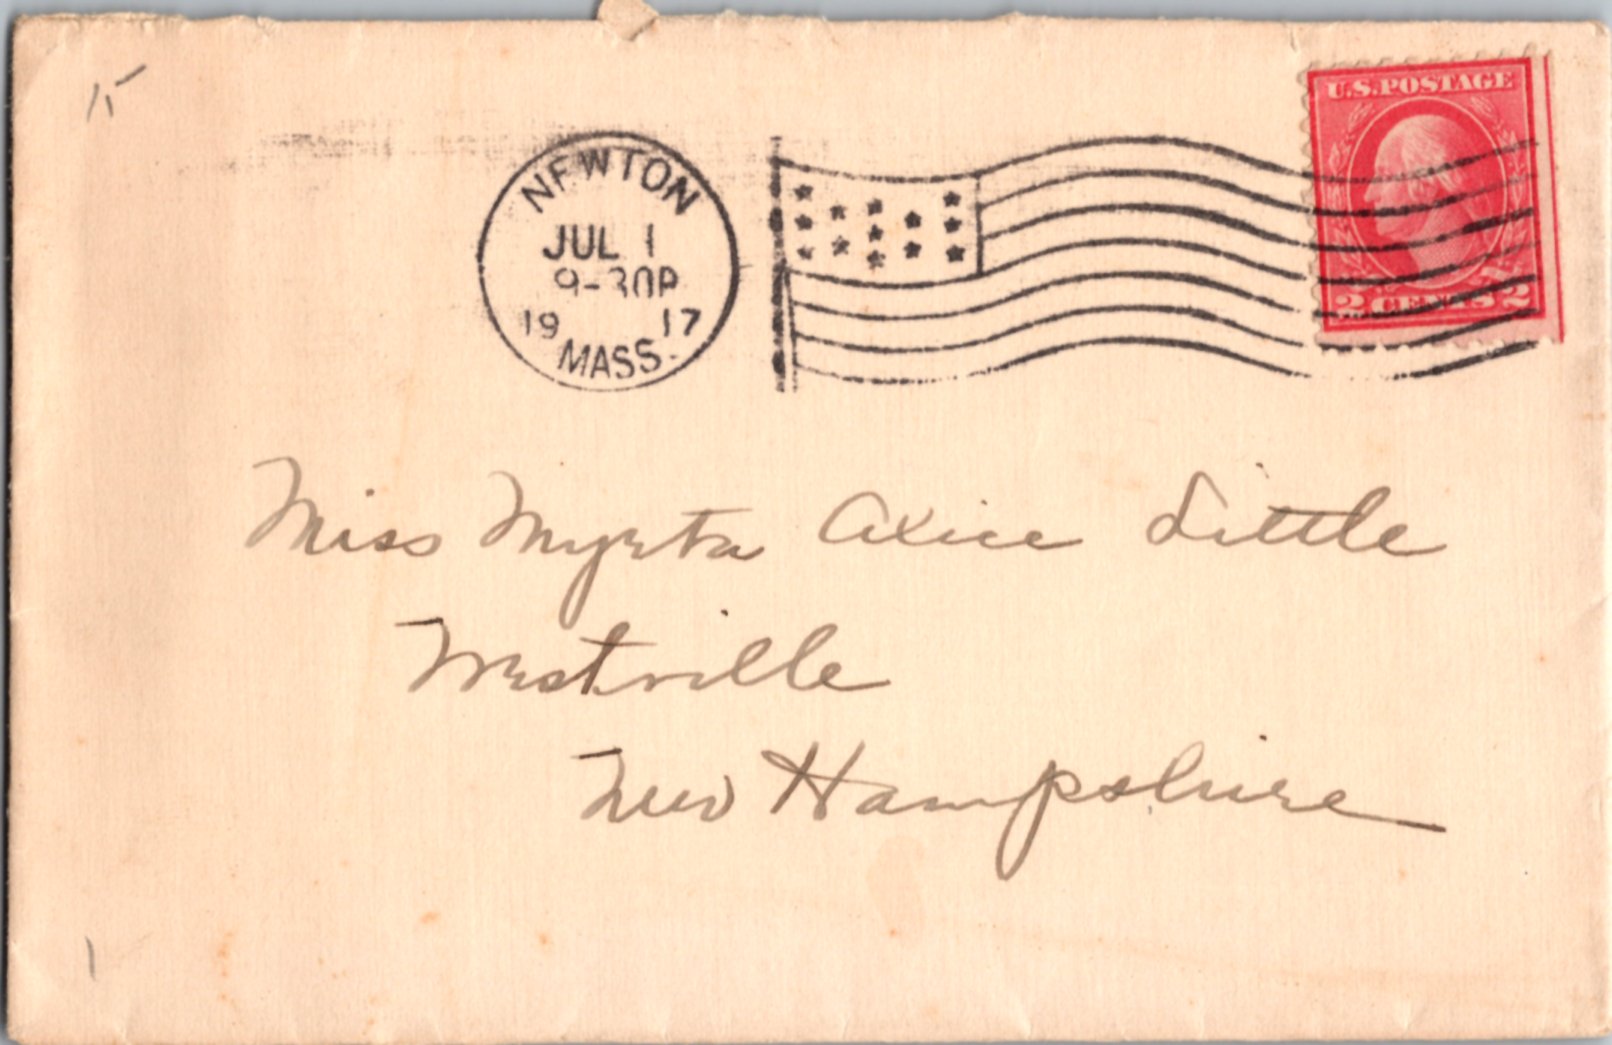 15
U.S.POSTAGE
NEWTON
JUL 1
9-30P
19 17
MASS.
2 CENTS 2
Miss Myrta Alice Little
Westville
New Hampshire